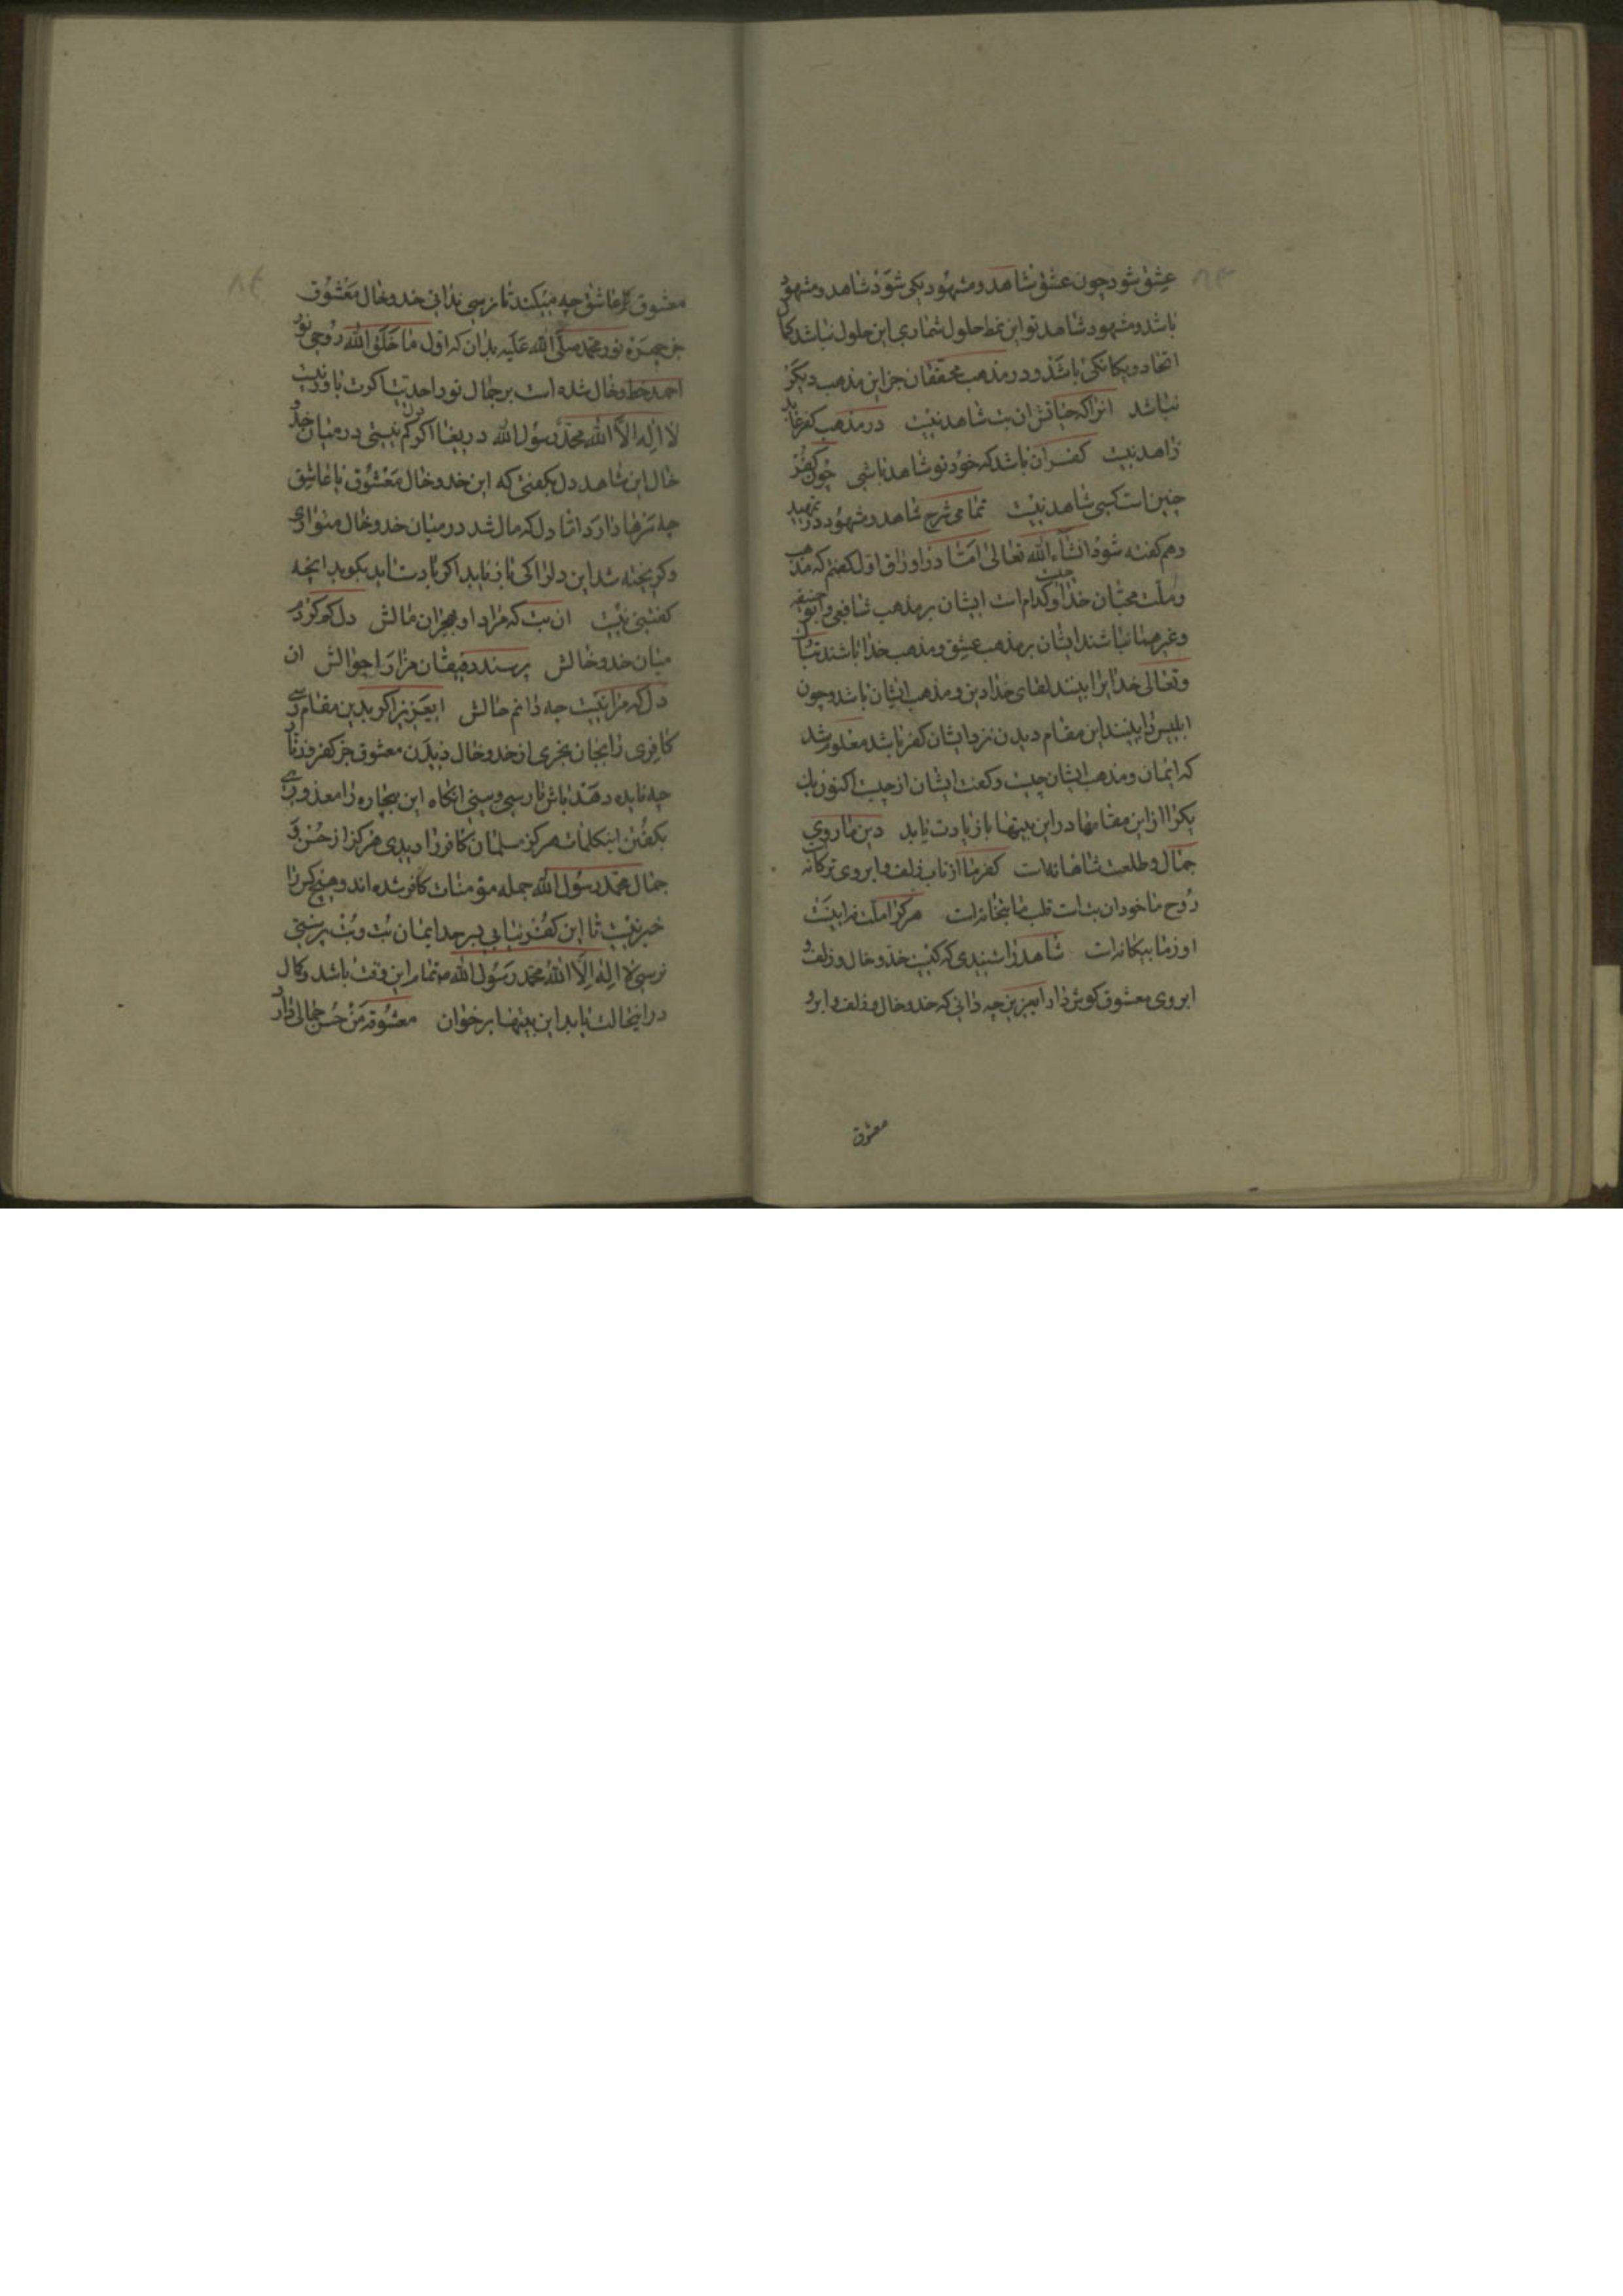 عشق شود چون عشق شاهد و مشهود یکی شود شاهد و مشهود
باشد و مشهود شاهد تو این نمط حلول شماری این حلول نباشد کمال
اتحاد و یکانکی باشد و در مذهب محققان جز این مذهب دیگر
نباشد انرا که حیاتش ان بت شاهد نیست در مذهب کفر عابد
زاهد نیست کفر ان باشد که خود تو شاهد باشی چون کفر
چنین است کسی شاهد نیست تمامی شرح شاهد و مشهود در تمهید
دهم کفته شود انشاء الله تعالی امّا در اوراق اول کفتم که مذهب
و ملت محبّان خدا چیست و کدام است ایشان بر مذهب شافعی و ابو حنیفه
و غیرهما نباشند ایشان بر مذهب عشق و مذهب خدا باشند تبارک
و تعالی خدایرا بینند لقای خدا دین و مذهب ایشان باشد و چون
ابلیس را بینند این مقام دیدن نزد ایشان کفر باشد معلوم شد
که ایمان و مذهب ایشان چیست و کفر ایشان از چیست اکنون هر
یکی را از این مقامها در این بیتها باز یادت یابد دین ما روی
جمال و طلعت شاهانه است کفر ما از تاب زلف و ابروی ترکانه
روح ما خود ان بت است قلب ما بتخانه است هر کرا ملت نه اینست
او زما بیکانه است شاهد را شنیدی که کیست خد و خال و زلف و
ابروی معشوق کوش دار ایعزیز چه دانی که خد و خال و زلف و ابرو
معشوق
معشوق با عاشق چه میکند تا نرسی ندانی خد و خال معشوق
جز چهره نور محمد صلی الله علیه بدان که اول ما خلق الله روحی نور
احمد خط و خال شده است بر جمال نور احد تبت اکرت باور نیست
لا اله الا الله محمد رسول الله دریغا اکر دل کم نیستی در میان خد و
خال این شاهد دل بکفتی که این خد و خال معشوق با عاشق
چه سرها دارد امّا دل که مال شد در میان خد و خال متواری
و کریخته شد این دل را کی باز یابد اکر بادست اید بکوید انچه
کفتنی نیست ان بت که مرا داد و هجران مالش دل کم کردم
میان خد و خالش پرسند رفیقان مرا از احوالش ان
دل که مرا نیست چه دانم حالش ایعزیز اکر بدین مقام رسی
کافری را بجان بخری از خد و خال دیدن معشوق جز کفر و زنار
چه فایده دهد باش تا رسی و بینی انکاه این بیچاره را معذور داری
بکفتن این کلمات هرکز مسلمان کافر را دیدی هرکز از حسن و
جمال محمد رسول الله جمله مؤمنات کافر شده اند و هیچ کس را
خبر نیست تا این کفر نیابی بسرحد ایمان بت و بت پرستی
نرسی لا اله الا الله محمد رسول الله تمام این وقت باشد و کمال
در اینحالت باید این بیتها بر خوان معشوقه من حسن و جمالی دارد